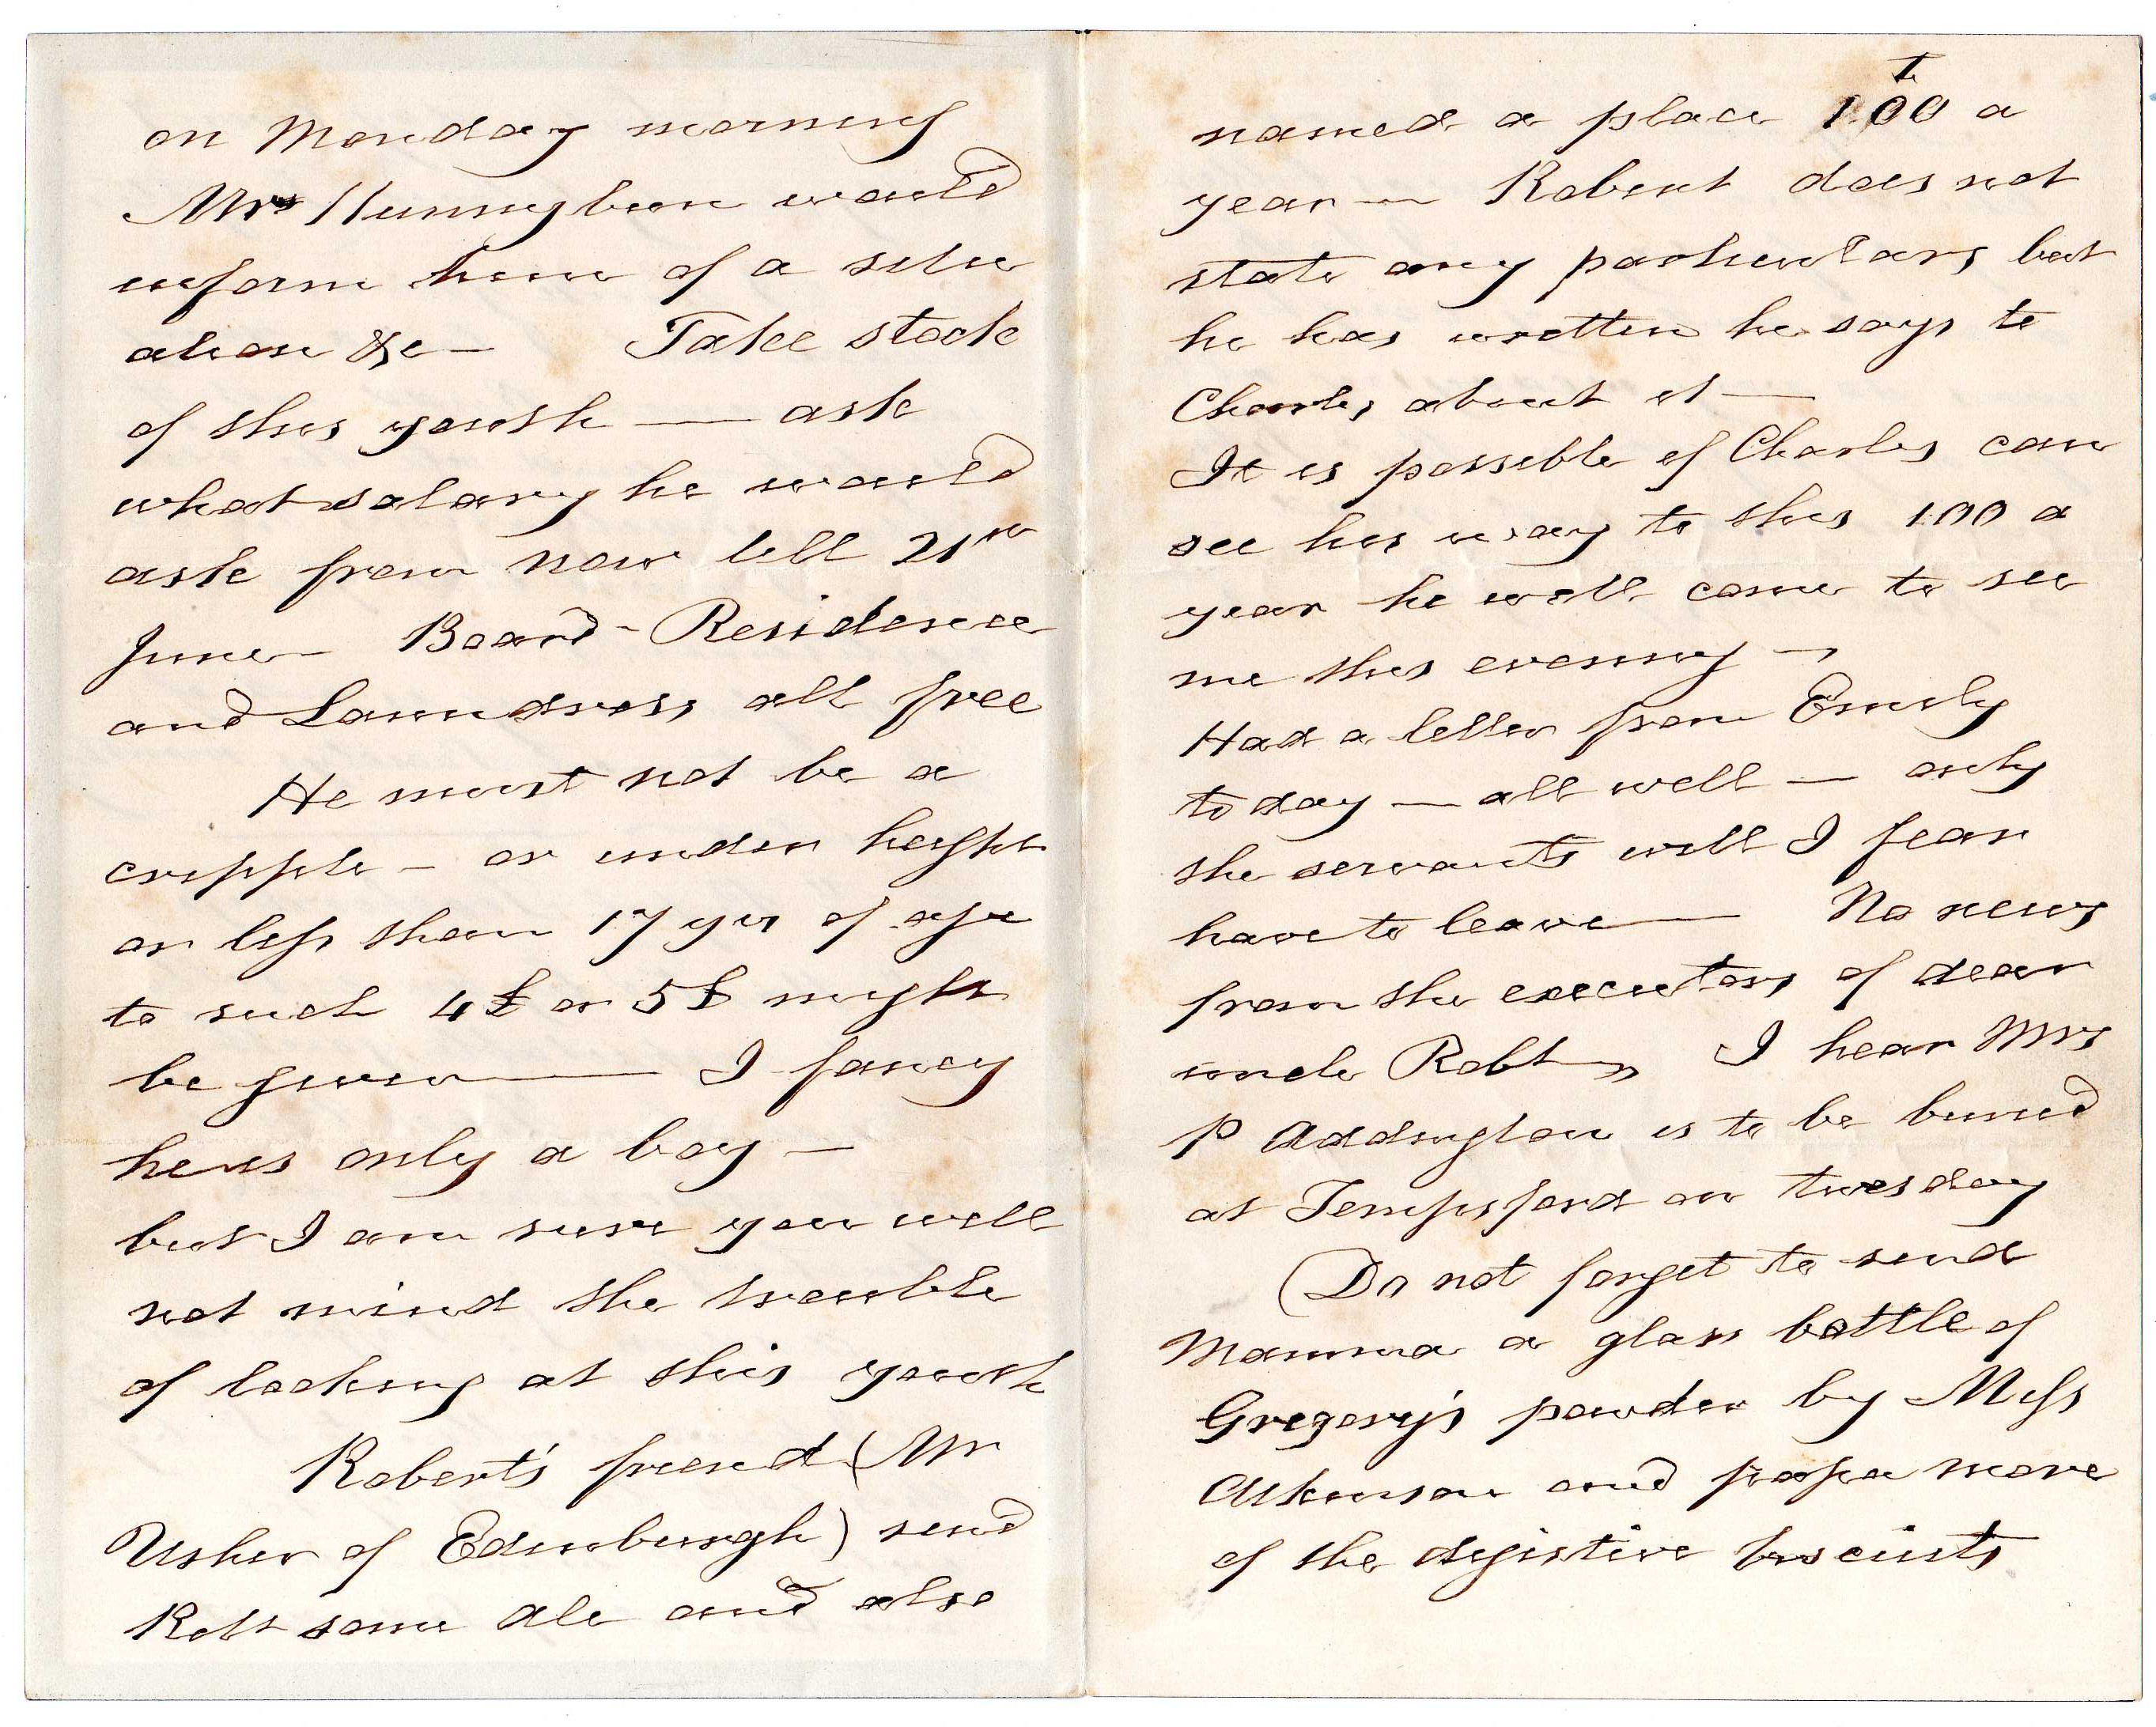 on Monday morning
Mrs Hunnybun would
inform him of a situ
ation &c — Take stock
of this youth — ask
what salary he would
ask from now till 21st
June — Board - Residence
and Laundress all free
He must not be a
cripple — or under height
or less than 17 yrs of age
to such 4£ or 5£ might
be given — I fancy
he is only a boy —
but I am sure you will
not mind the trouble
of looking at this youth
Robert's friend (Mr
Usher of Edinburgh) send
Robt some ale and also
named a place 100 a
year — Robert does not
state any particulars but
he has written he says to
Charles about it —
It is possible if Charles can
see his way to this 100 a
year he will come to see
me this evening —
Had a letter from Emily
to day — all well — only
the servants will I fear
have to leave — No news
from the executors of dear
uncle Robt — I hear Mrs
P Addington is to be buried
at Tempsford on tuesday
(Do not forget to send
Mamma a glass bottle of
Gregory's powder by Miss
Atkinson and papa more
of the digistive biscuits